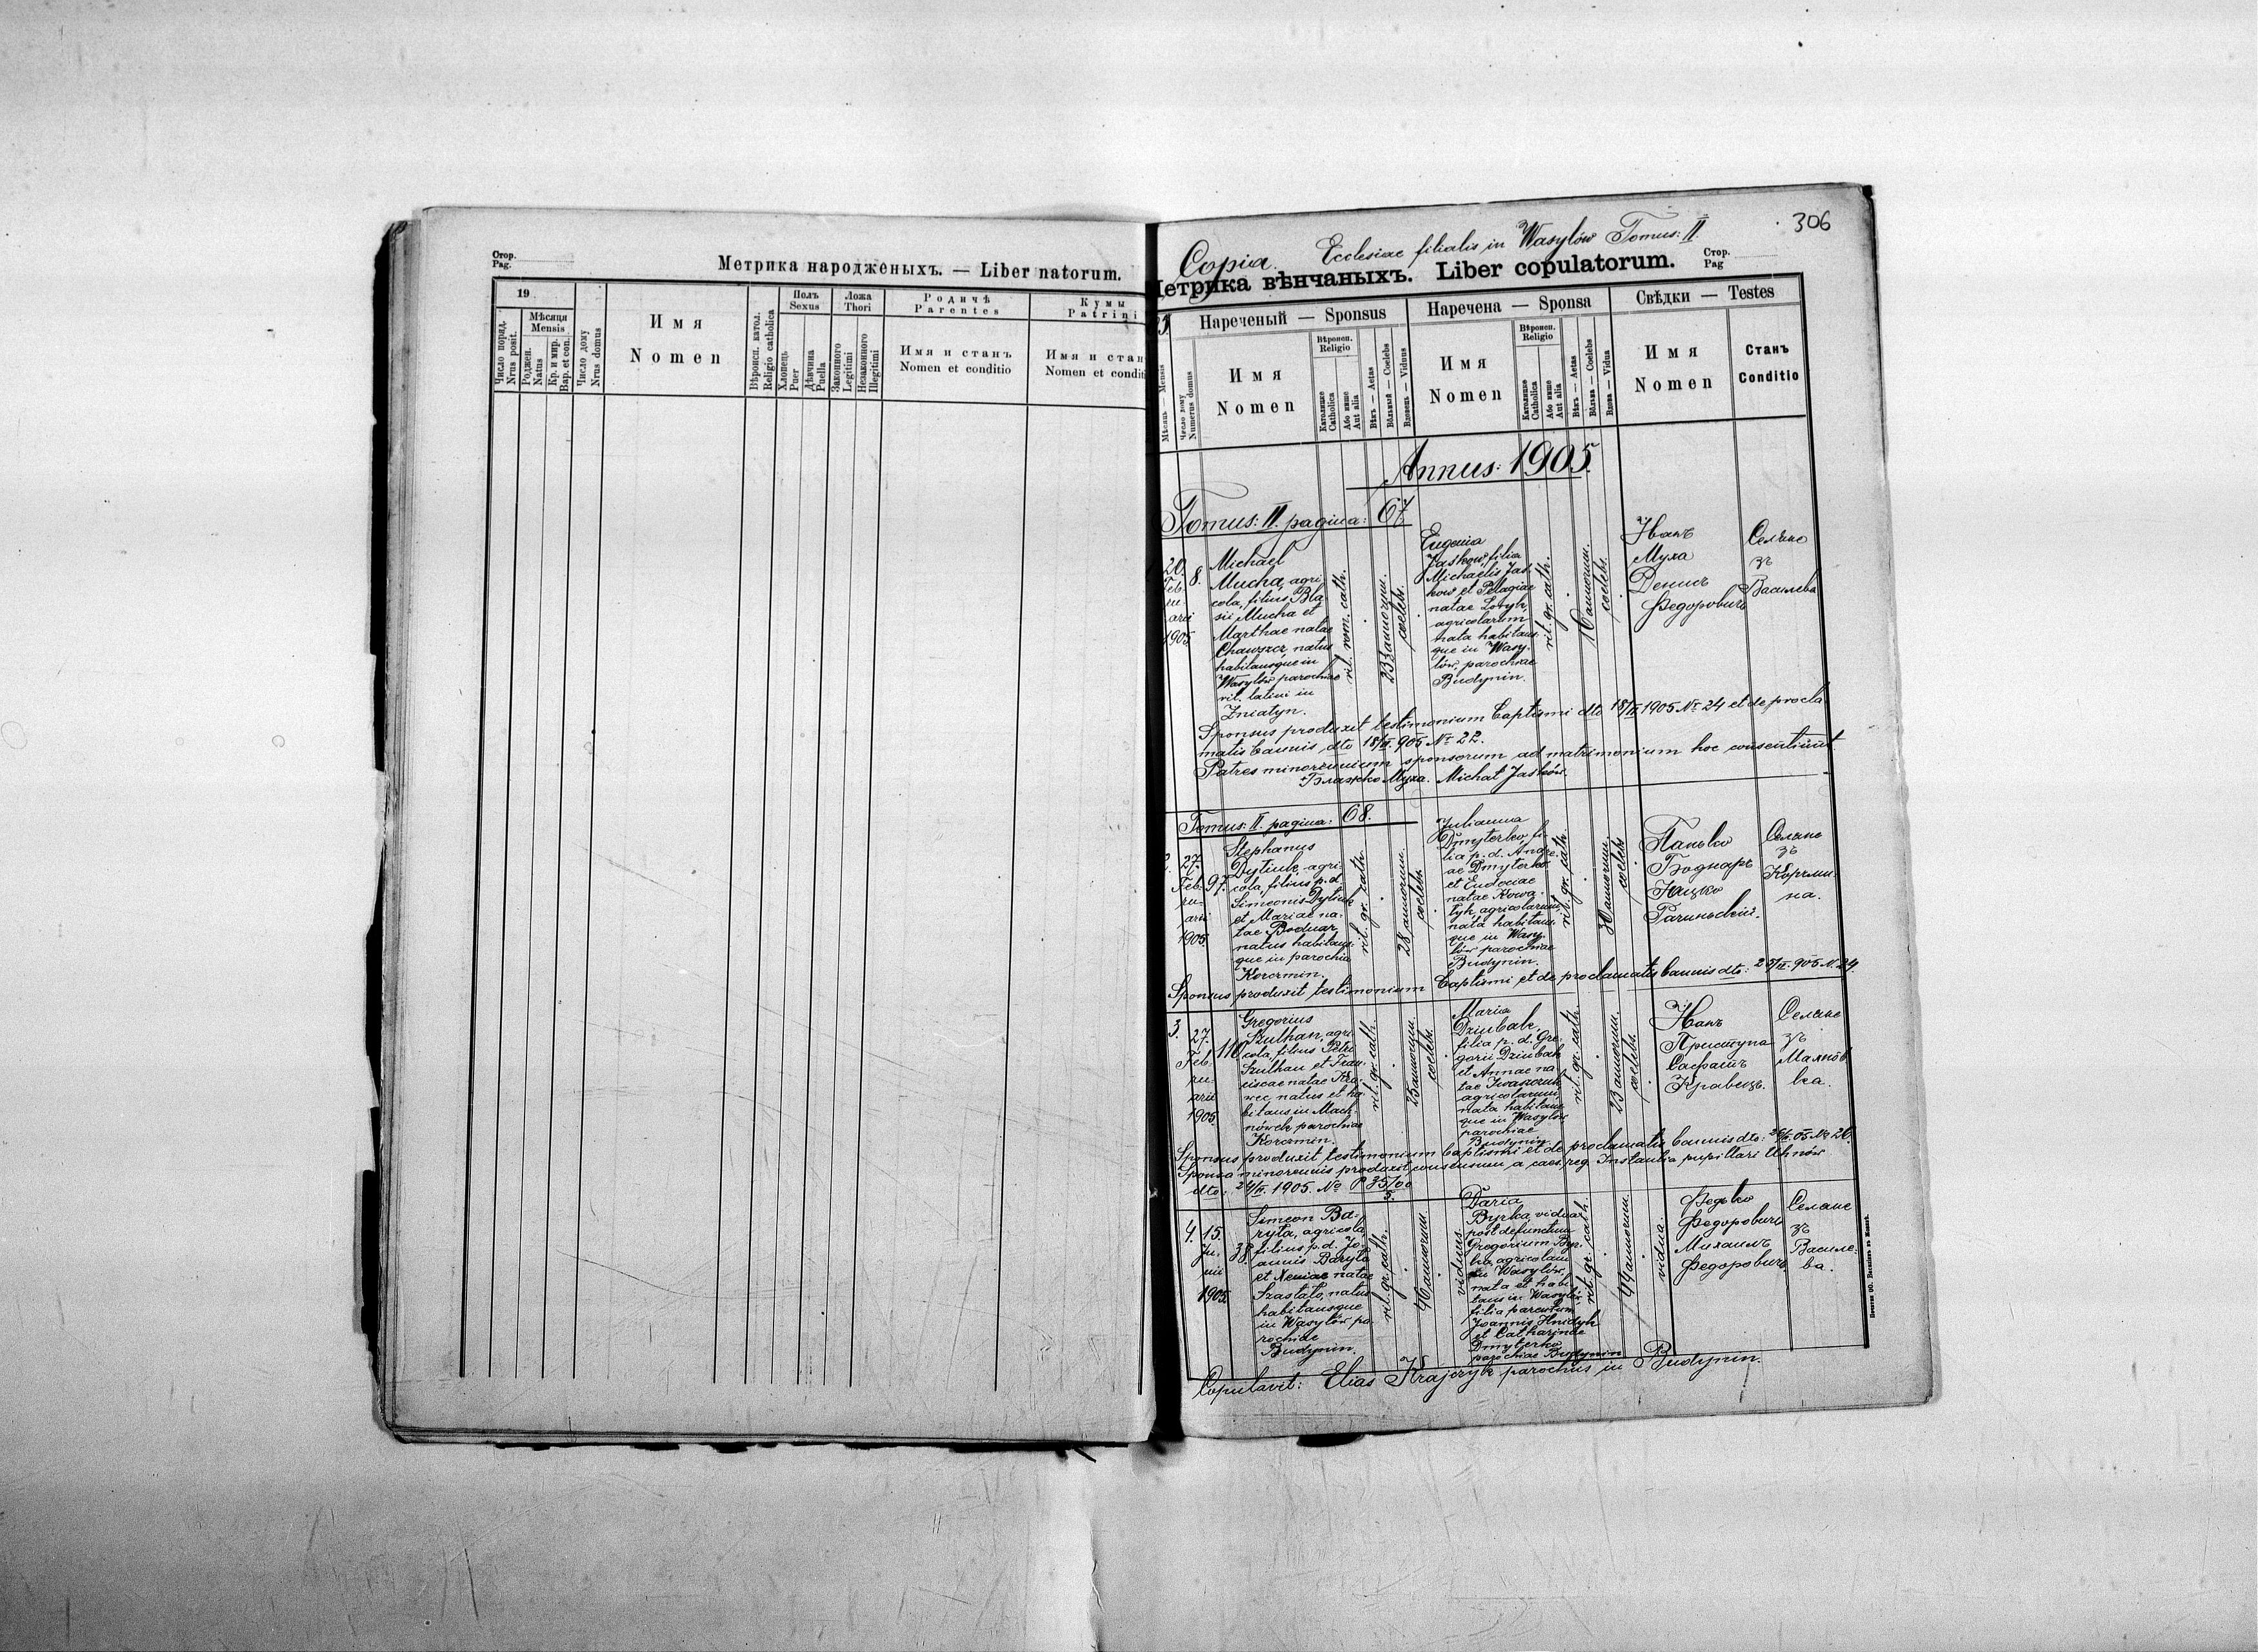 Стор.
Pag.
Метрика народженыхъ. — Liber natorum.
19
Число поряд.
Nrus posit.
Мѣсяця
Mensis
Роджен.
Natus
Кр. и мир.
Bap. et con.
Число дому
Nrus domus
Имя
Nomen
Вѣроисп. катол.
Religio catholica
Полъ
Sexus
Хлопець
Puer
Дѣвчина
Puella
Ложа
Thori
Законного
Legitimi
Незаконного
Illegitimi
Родичѣ
Parentes
Имя и станъ
Nomen et conditio
Кумы
Patrini
Имя и стан
Nomen et conditi
306
Copia. Ecclesiae filialis in Wasylów Tomus: II
етрика вѣнчаныхъ. Liber copulatorum.
Стор.
Pag
Нареченый — Sponsus
Наречена — Sponsa
Свѣдки — Testes
Мѣсяць — Mensis
Число дому
Numerus domus
Имя
Nomen
Вѣроисп.
Religio
Католицке
Catholica
Або инше
Aut alia
Вѣкъ — Aetas
Вѣльный — Coelebs
Вдовець — Viduus
Имя
Nomen
Вѣроисп.
Religio
Католицке
Catholica
Або инше
Aut alia
Вѣкъ — Aetas
Вѣльна — Coelebs
Вдова — Vidua
Имя
Nomen
Станъ
Conditio
Annus: 1905.
Tomus: II. pagina: 67
20.
Feb.
ru-
arii
1905
8.
Michael
Mucha, agri-
cola, filius Bla-
sii Mucha et
Marthae natae
natus
habitansque in
Wasylów parochiae
rit. latini in
Żniatyn.
rit. rom. cath.
23 annorum.
coelebs.
Eugenia
Jaśków, filia
Michaelis Jaś-
ków et Pelagiae
natae Lotyk,
agricolarum
nata habitans-
que in Wasy-
lów, parochiae
Budynin.
rit. gr. cath.
16 annorum.
coelebs.
Иванъ
Муха
Денисъ
Федоровичъ
Селяне
зъ
Василева
Sponsus produxit testimonium baptismi dto 18/II 1905 № 24 et de procla
matis bannis dto 18/II. 905 № 22.
Patres minorennium sponsorum ad matrimonium hoc consentiunt.
+Блажко Муха. Michał Jaśków.
Tomus: II. pagina: 68.
27.
Feb.
ru-
arii
1905
97.
Stephanus
Dytiuk, agri-
cola, filius p. d.
Simeonis Dytiuk
et Mariae na-
tae Bodnar,
natus habitans-
que in parochia
Korczmin.
rit. gr. cath.
28 annorum.
coelebs.
Julianna
Dmyterko, fi-
lia p. d. Andre-
ae Dmyterko
et Eudociae
natae Kowa-
lyk, agricolarum,
nata habitans-
que in Wasy-
lów parochiae
Budynin.
rit. gr. cath.
30 annorum.
coelebs
Панько
Боднаръ
Юцко
Селяне
зъ
Корчми-
на.
Sponsus produxit testimonium baptismi et de proclamatis bannis dto: 25/II. 905 N. 24.
3.
27.
Feb.
ru-
arii
1905.
110
Gregorius
Szulhan, agri-
cola, filius Petri
Szulhan et Fran-
ciscae natae Kra-
wec, natus et ha-
bitans in Mach-
nówek, parochiae
Korczmin.
rit. gr. cath.
23 annorum.
coelebs.
Maria
Dziubak,
filia p. d. Gre-
gorii Dziubak
et Annae na-
tae Iwaszczuk,
agricolarum,
nata habitans-
que in Wasylów
parochiae
Budynin.
rit. gr. cath.
23 annorum.
coelebs.
Иванъ
Приступа
Кравець.
Селяне
зъ
Махнôв
ка.
Sponsus produxit testimonium baptismi et de proclamatis bannis dto: 26/II. 05 № 26.
Sponsa minorennis produxit consensum a caes. reg. Instantia pupillari Uhnów
dto: 24/II. 1905. No P 35/00
5.
4.
15.
Ju-
nii
1905.
38.
Simeon Ba-
ryła, agricola,
filius p. d. Jo-
annis Baryła
et Xeniae natae
Szastało, natus
habitansque
in Wasylów pa-
rochiae
Budynin.
rit. gr. cath.
46 annorum.
viduus.
Daria
Byrka, vidua
post defunctum
Gregorium Byr-
ka, agricolam
in Wasylów,
nata et habi-
tans in Wasylów
filia parentum
Joannis Hnidyk
et Catharinae
Dmyterko
parochiae Budynin
rit. gr. cath.
44 annorum.
vidua.
Федько
Федоровичъ
Михаилъ
Федоровичъ
Селяне
зъ
Василе-
ва.
Copulavit: Elias Krajczyk parochus in Budynin.